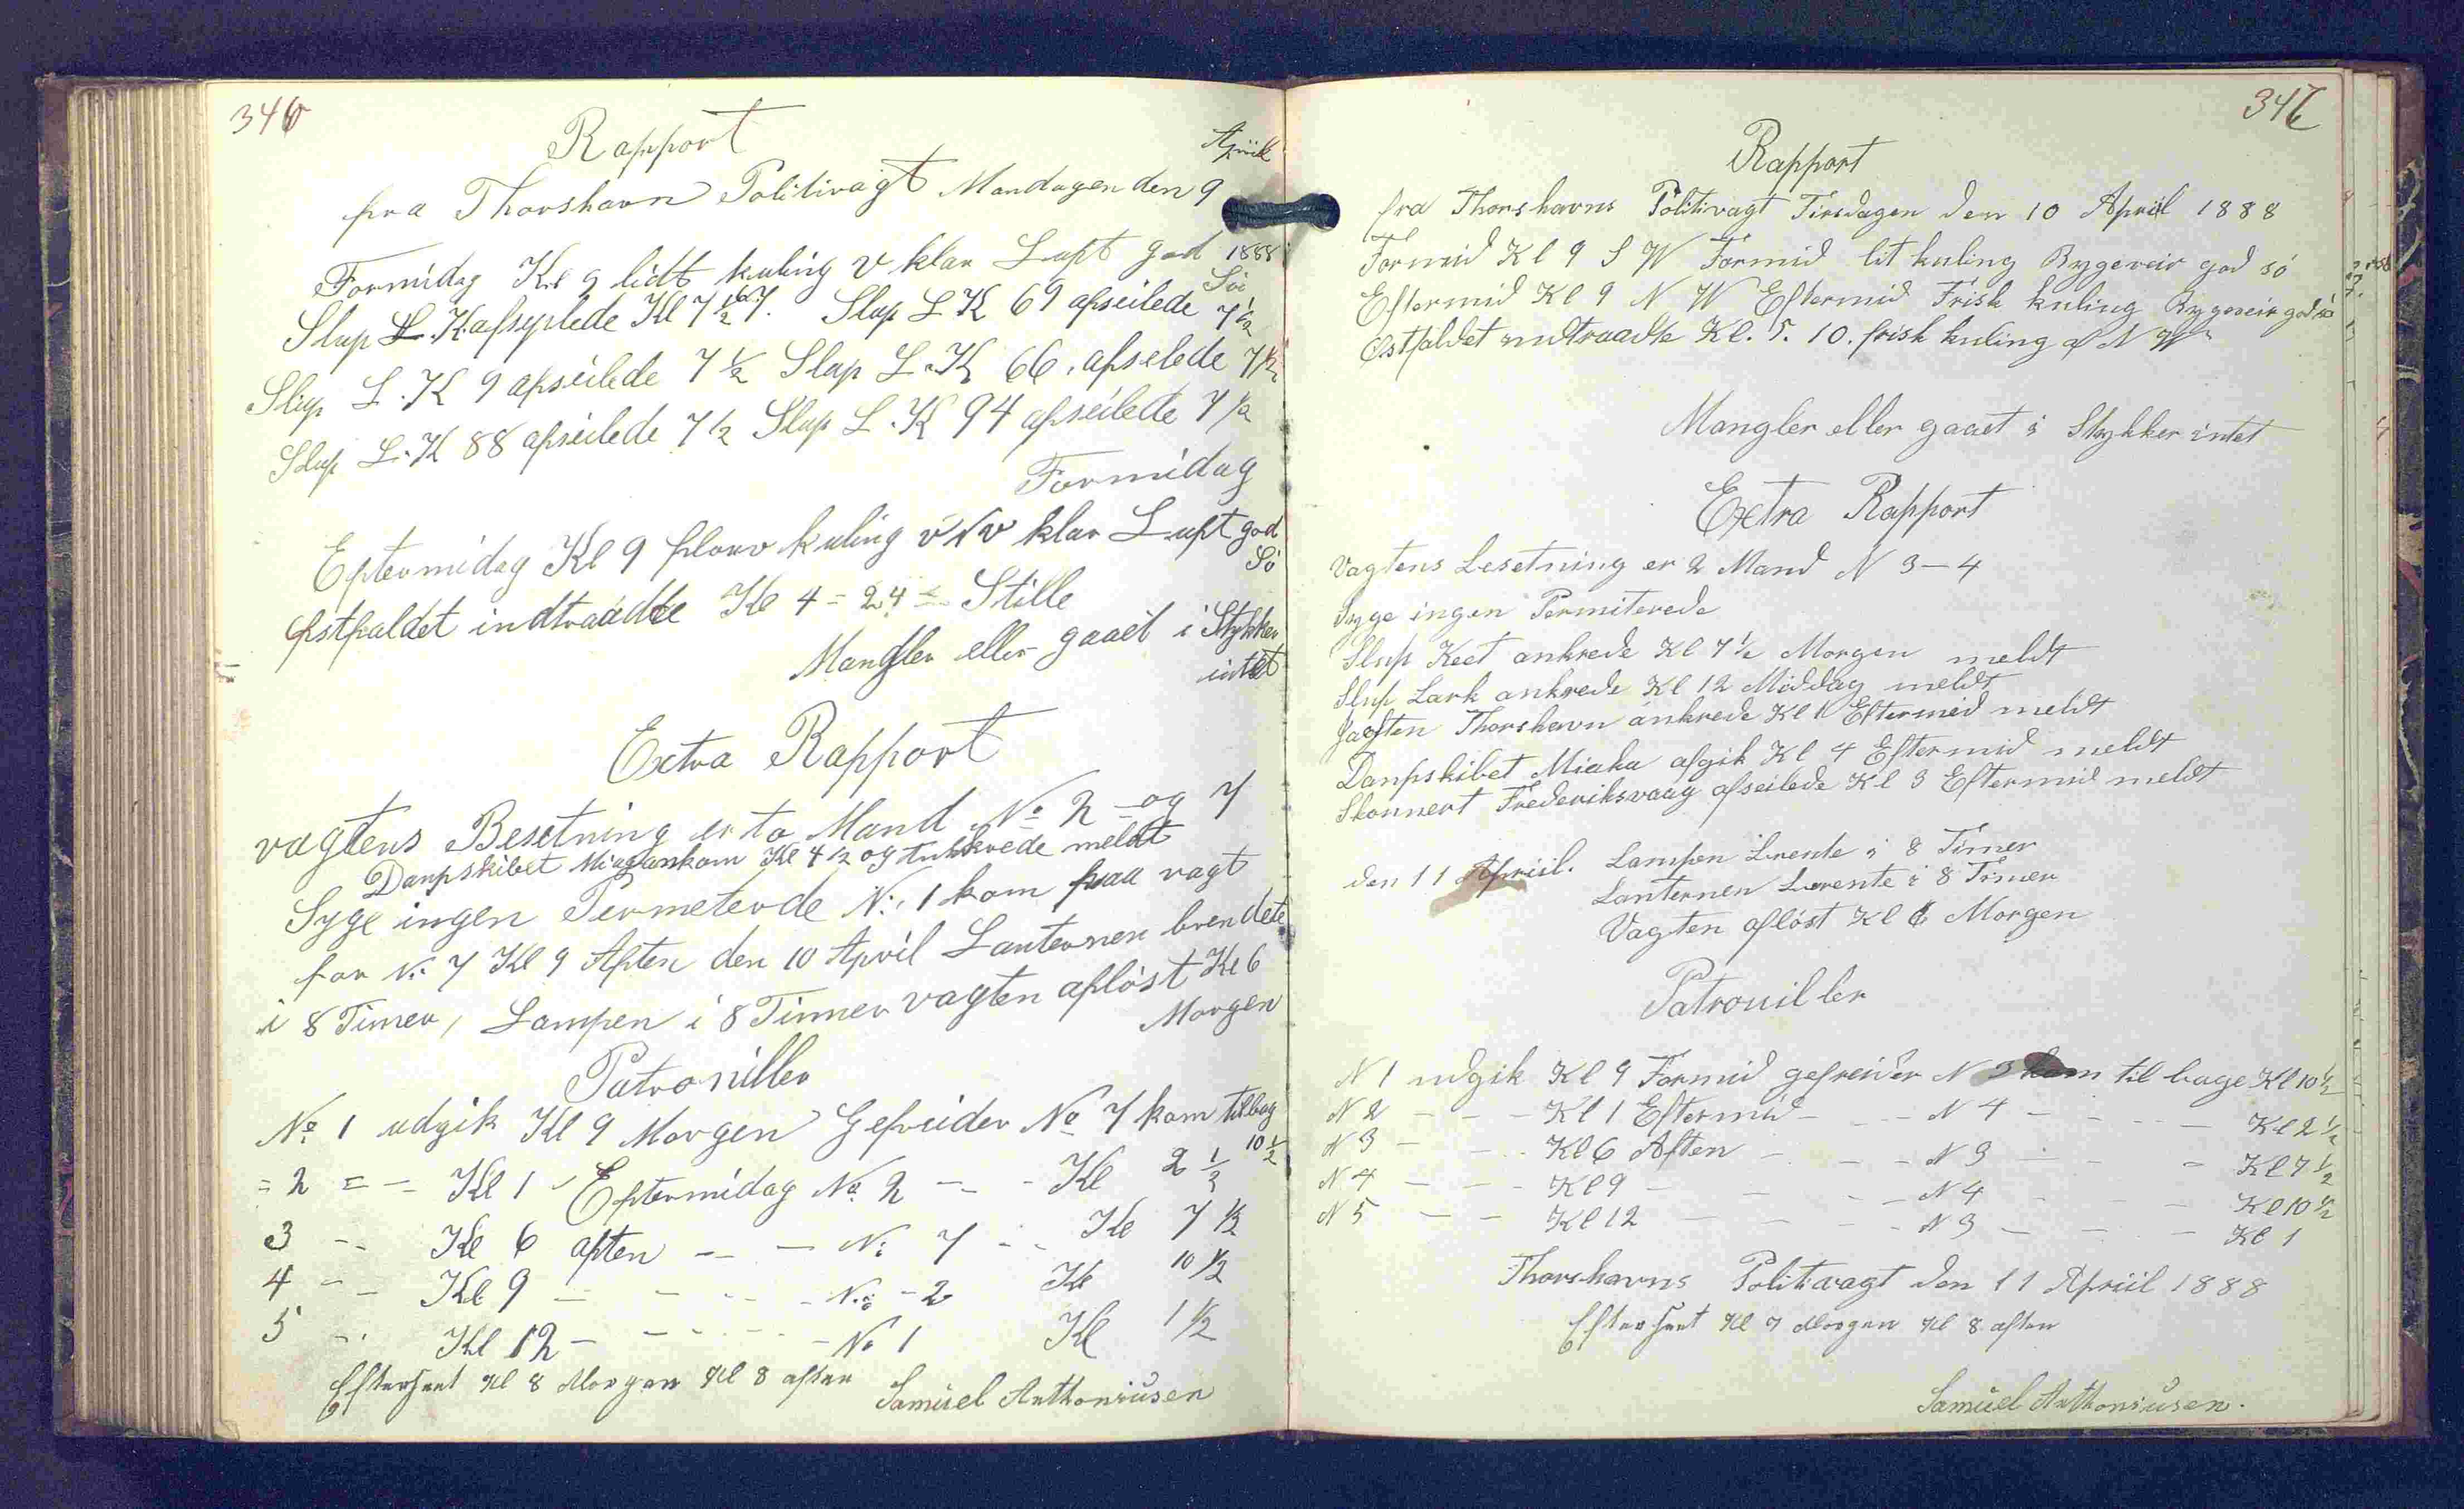 346
Rapport
fra Thorshavn Politivagt Mandagen den 9 Apriil
1888
Formidag Kl 9 lidt kuling v klar Luft god Sö
Slup L. K. afseylede Kl 7 1/2 Slup L K 69 afseilede 7 1/2
Slup L. K 9 afseilede 7 1/2 Slup L. K 66. afselede 7 1/2
Slup L. K 88 afseilede 7 1/2 Slup L. K 94 afseilede 7 1/2
Formidag
Eftermidag Kl 9 flouv kuling v N v klar Luft god Sö
østfaldet indtraadte Kl 4 = 24 = Stille
Mangler eller gaaet i Stykker
intet
Extra Rapport
vagtens Besetning er to Mand No 2 og 7
Danpskibet ankom Kl 4 1/2 og ankrede meldt
Syge ingen Permeterde No. 1 kom paa vagt
for No. 7 Kl 9 Aften den 10 April Lanternen brendete
i 8 Timer, Lampen i 8 Timer vagten aflöst Kl 6
Morgen
Patroniller
No. 1 udgik Kl 9 Morgen Gefreider No 7 kom tilbag
10 1/2
= 2 = - Kl 1 - Eftermidag No. 2 - - Kl 2 1/2
3 - - Kl 6 aften - - - No: 7 - - Kl 7 1/2
4 - - Kl 9 - - - - - No: - 2 Kl 10 1/2
5 - - Kl 12 - - - - - - No 1 Kl 1 1/2
Efterseet Kl 8 Morgen Kl 8 aften
Samuel Anthoniusen
347
Rapport
fra Thorshavns Politivagt Tirsdagen den 10 Apriil 1888
Formid Kl 9 S W Formid lit kuling Bygeveir god sö
Eftermid Kl 9 N W Eftermid Frisk kuling Bygeveir god sö
Østfaldet indtraadte Kl. 5. 10. frisk kuling af N W
Mangler eller gaaet i Stykker intet
Extra Rapport
Vagtens Besetning er 2 Mand N 3 - 4
Syge ingen Permiterede
Slup Keet ankrede Kl 7 1/2 Morgen meldt
Slup Lark ankrede Kl 12 Middag meldt
Jagten Thorshavn ankrede Kl 1 Eftermid meldt
Danpskibet Miaka afgik Kl 4 Eftermid meldt
Skonnert Frederiksvaag afseilede Kl 3 Eftermid meldt
den 11 Apriil. Lampen brente i 8 Timer
Lanternen brente i 8 Timer
Vagten aflöst Kl 6 Morgen
Patrouiller
N 1 udgik Kl 9 Formid gefreider N 3 kom til bage Kl 10 1/2
N 2 - - - Kl 1 Eftermid - - - N 4 - - - - Kl 2 1/2
N 3 - - - Kl 6 Aften - - - N 3 - - - Kl 7 1/2
N 4 - - - Kl 9 - - - - N 4 - - - Kl 10 1/2
N 5 - - Kl 12 - - - - N 3 - - - Kl 1
Thorshavns Politivagt den 11 Apriil 1888
Efterseet Kl 7 Morgen Kl 8 aften
Samuel Anthoniusen.